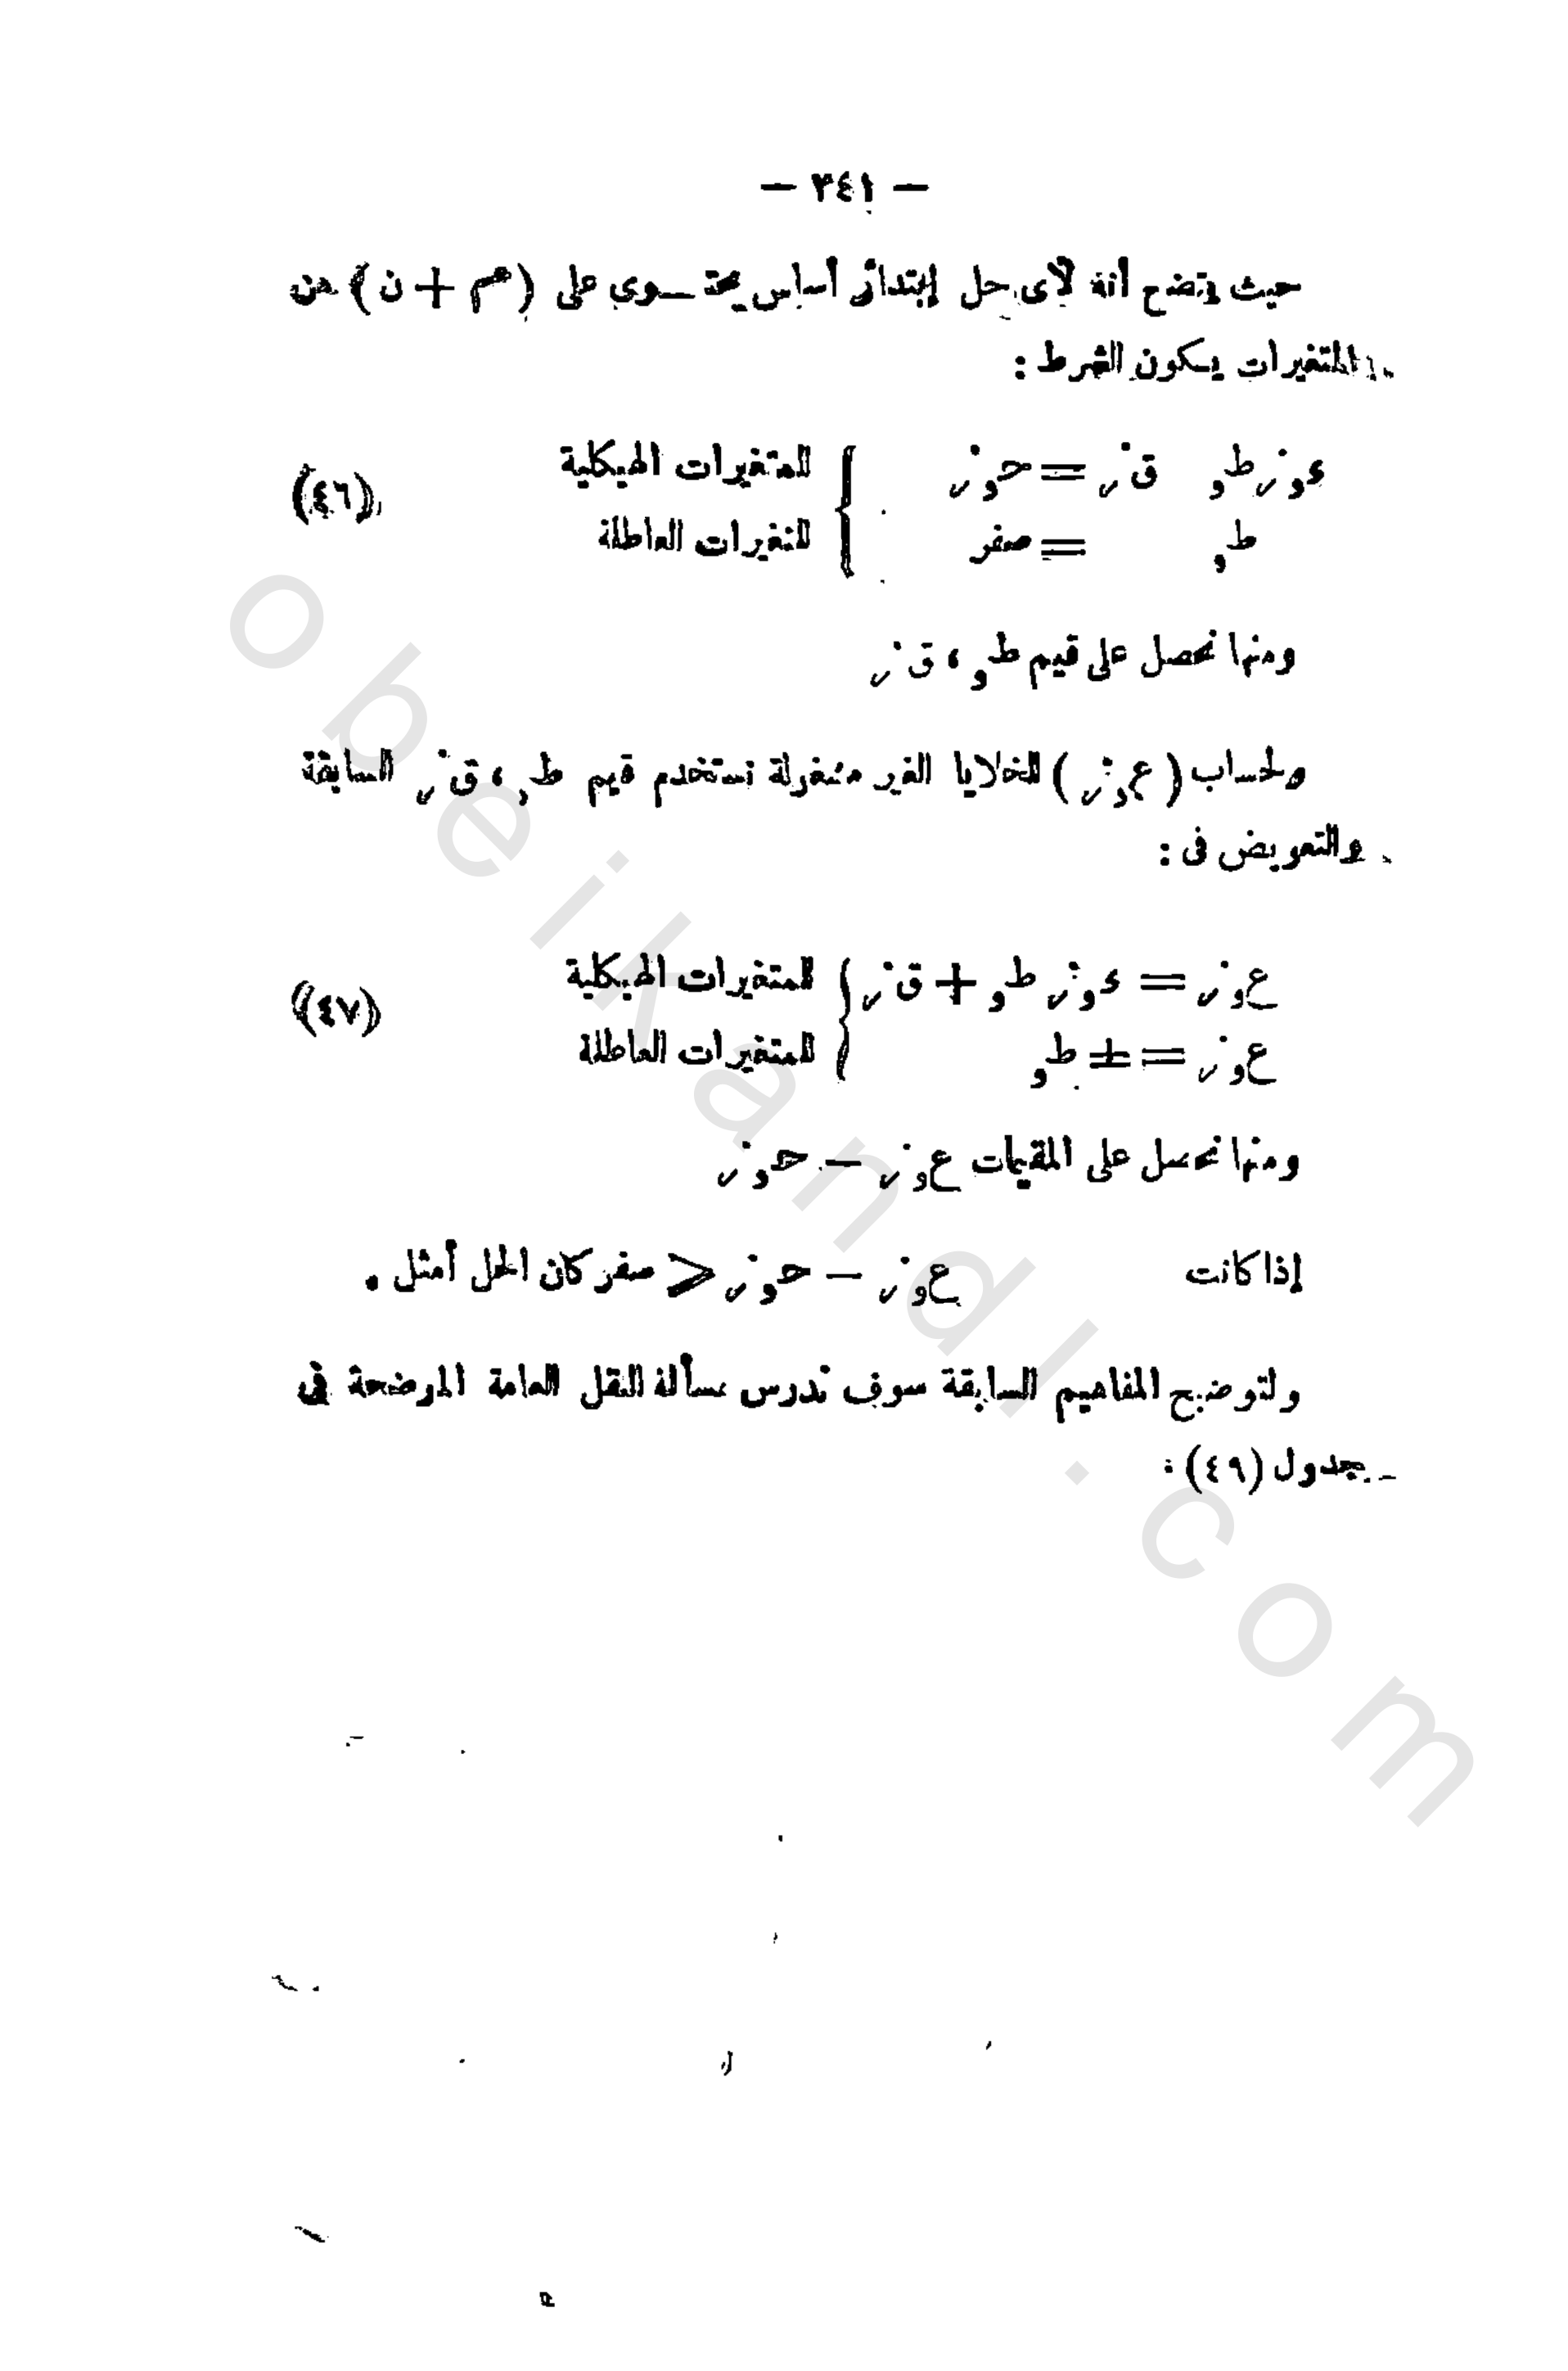 — ٣٤١ —
حيث يتضح أنه لأى حل إبتدائى أساس يحتـــوى على (م + ن) من
المتغيرات يكون الشرط :
ءور طو ق ر = حور } للمتغيرات الهيكلية
طو = صفر } للمتغيرات العاطلة (٤٦)
ومنها نحصل على قيم طو ، ق ر
ولحساب (ع ور) للخلايا الغير مشغولة نستخدم قيم طو ، ق ر السابقة
والتعويض فى :
ع ور = ءور طو + ق ر } للمتغيرات الهيكلية
ع ور = ± طو } للمتغيرات العاطلة (٤٧)
ومنها نحصل على المقيمات ع ور — حور
إذا كانت ع ور — حور ⩽ صفر كان الحل أمثل .
ولتوضيح المفاهيم السابقة سوف ندرس مسألة النقل العامة الموضحة فى
جدول (٤٩) :
obeikandl.com